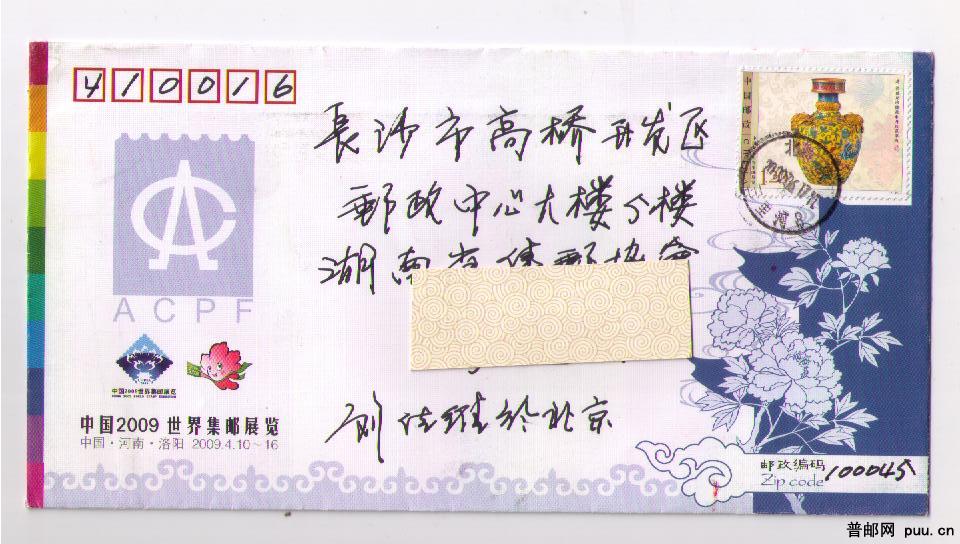 410016
長沙市高桥开发区
邮政中心大楼
湖南省集邮协會
ACPF
中国2009世界集邮展览
中国2009世界集邮展览
中国·河南·洛阳 2009.4.10~16
於北京
中国邮政
北
邮政编码
Zip code
100045
普邮网 puu.cn